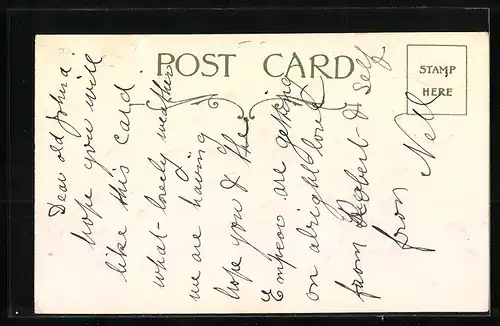 POST CARD
STAMP
HERE
Dear old
hope you will
like this card
what lovely weather
we are having
hope you & the
Emperor are getting
on alright love
from Robert & self
from Nell